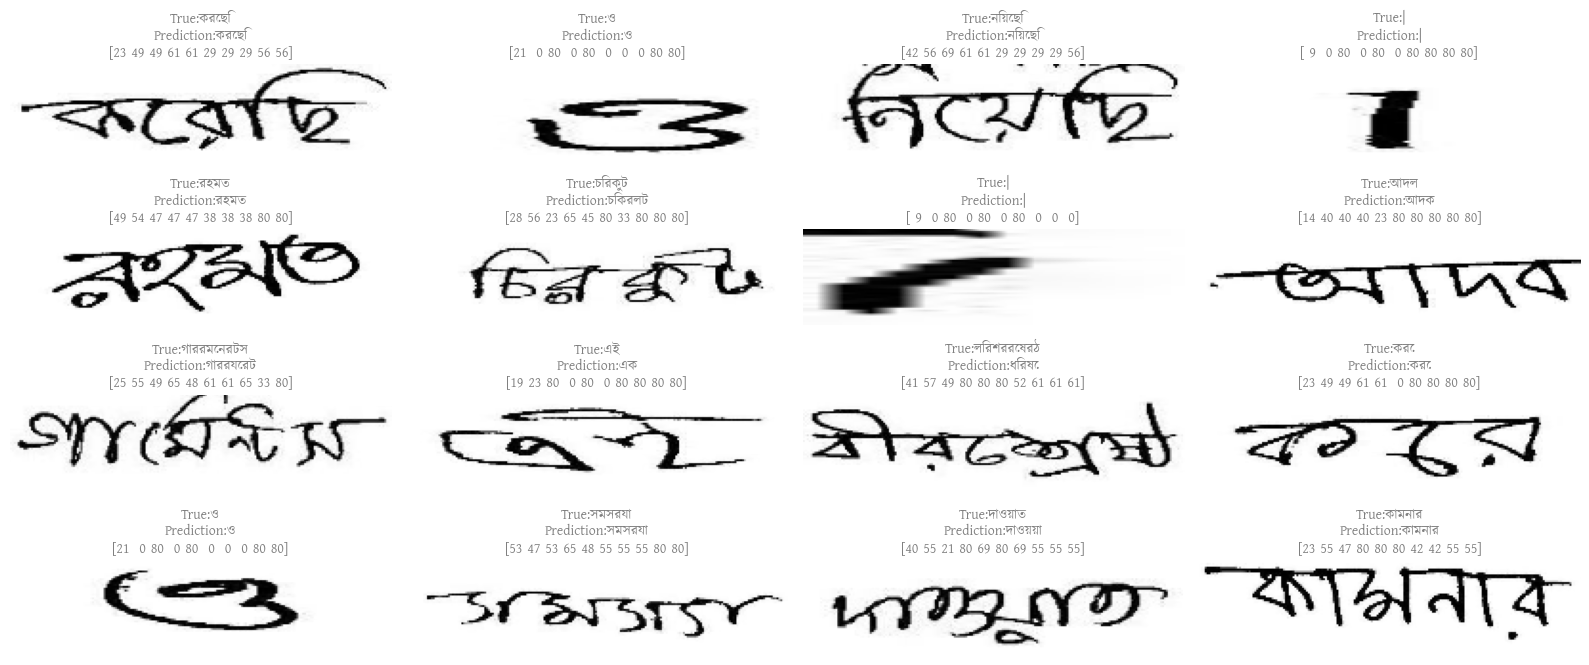 True:করছেি
Prediction:করছেি
[23 49 49 61 61 29 29 29 56 56]
করেছি
True:ও
Prediction:ও
[21 0 80 0 80 0 0 0 80 80]
ও
True:নয়িছেি
Prediction:নয়িছেি
[42 56 69 61 61 29 29 29 29 56]
নিয়েছি
True:|
Prediction:|
[ 9 0 80 0 80 0 80 80 80 80]
।
True:রহমত
Prediction:রহমত
[49 54 47 47 47 38 38 38 80 80]
রহমত
True:চরিকুট
Prediction:চকিরলট
[28 56 23 65 45 80 33 80 80 80]
চিরকুট
True:|
Prediction:|
[ 9 0 80 0 80 0 80 0 0 0]
True:আদল
Prediction:আদক
[14 40 40 40 23 80 80 80 80 80]
আদব
True:গাররমনেরটস
Prediction:গাররযরেট
[25 55 49 65 48 61 61 65 33 80]
গার্মেন্টস
True:এই
Prediction:এক
[19 23 80 0 80 0 80 80 80 80]
এই
True:লরিশররষেরঠ
Prediction:ধরিষে
[41 57 49 80 80 80 52 61 61 61]
বীরশ্রেষ্ঠ
True:করে
Prediction:করে
[23 49 49 61 61 0 80 80 80 80]
করে
True:ও
Prediction:ও
[21 0 80 0 80 0 0 0 80 80]
ও
True:সমসরযা
Prediction:সমসরযা
[53 47 53 65 48 55 55 55 80 80]
সমস্যা
True:দাওয়াত
Prediction:দাওয়য়া
[40 55 21 80 69 80 69 55 55 55]
দাওয়াত
True:কামনার
Prediction:কামনার
[23 55 47 80 80 80 42 42 55 55]
কামনার